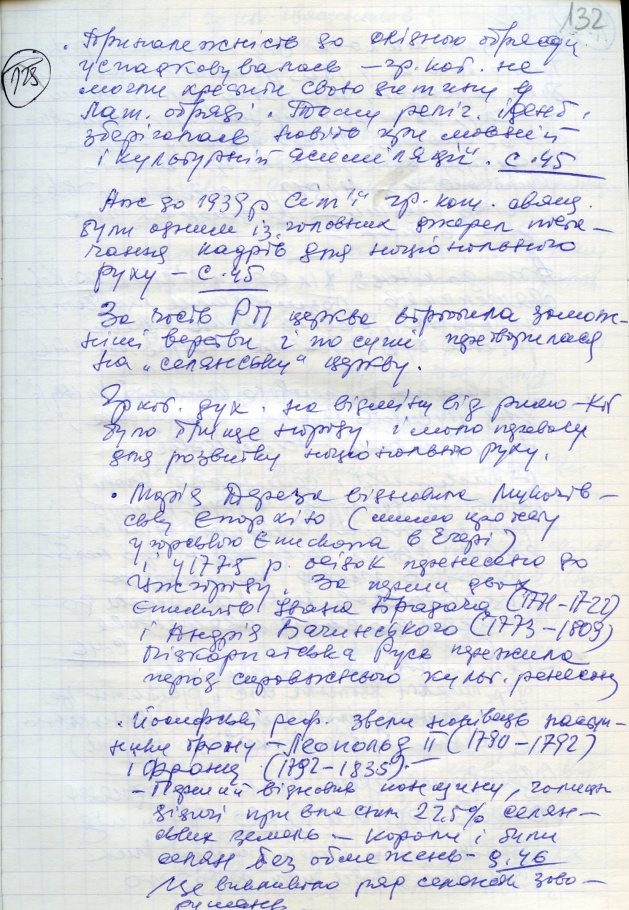 132
128
• Приналежність до східного обряду
успадковувалась – гр. кат. не
могли хрестити свою дитину в
лат. обряді. Тому реліг. ідент.
зберігалась навіть при мовній
і культурній асиміляції. с. 45
Аж до 1939 р сім'ї гр. кат. свящ.
були одним із головних джерел поста-
чання кадрів для національного
руху – с. 45
За часів РП церква втратила замож-
ніші верстви і по суті перетворилася
на „селянську" церкву.
Гр кат. дух. на відміну від римо-кат
було ближче народу і мало підставу
для розвитку національного руху.
• Марія Тереза відновила Мукачів-
ську Єпархію (мимо протесту
угорського Єпископа в Егері)
і у 1775 р. осідок перенесено до
Ужгороду. За перших двох
Єпископів Івана Брадача (1771-1772)
і Андрія Бачинського (1773-1809)
Підкарпатська Русь пережила
період справжнього культ. ренесансу
• Йосифські реф. звели нанівець наступ-
ники трону – Леопольд II (1790-1792)
і Франц (1792-1835). –
– Перший відновив панщину,
при 22,5% селян-
ських земель – карали і били
селян без обмежень – с. 46
Це викликало ряд селянських заво-
рушень